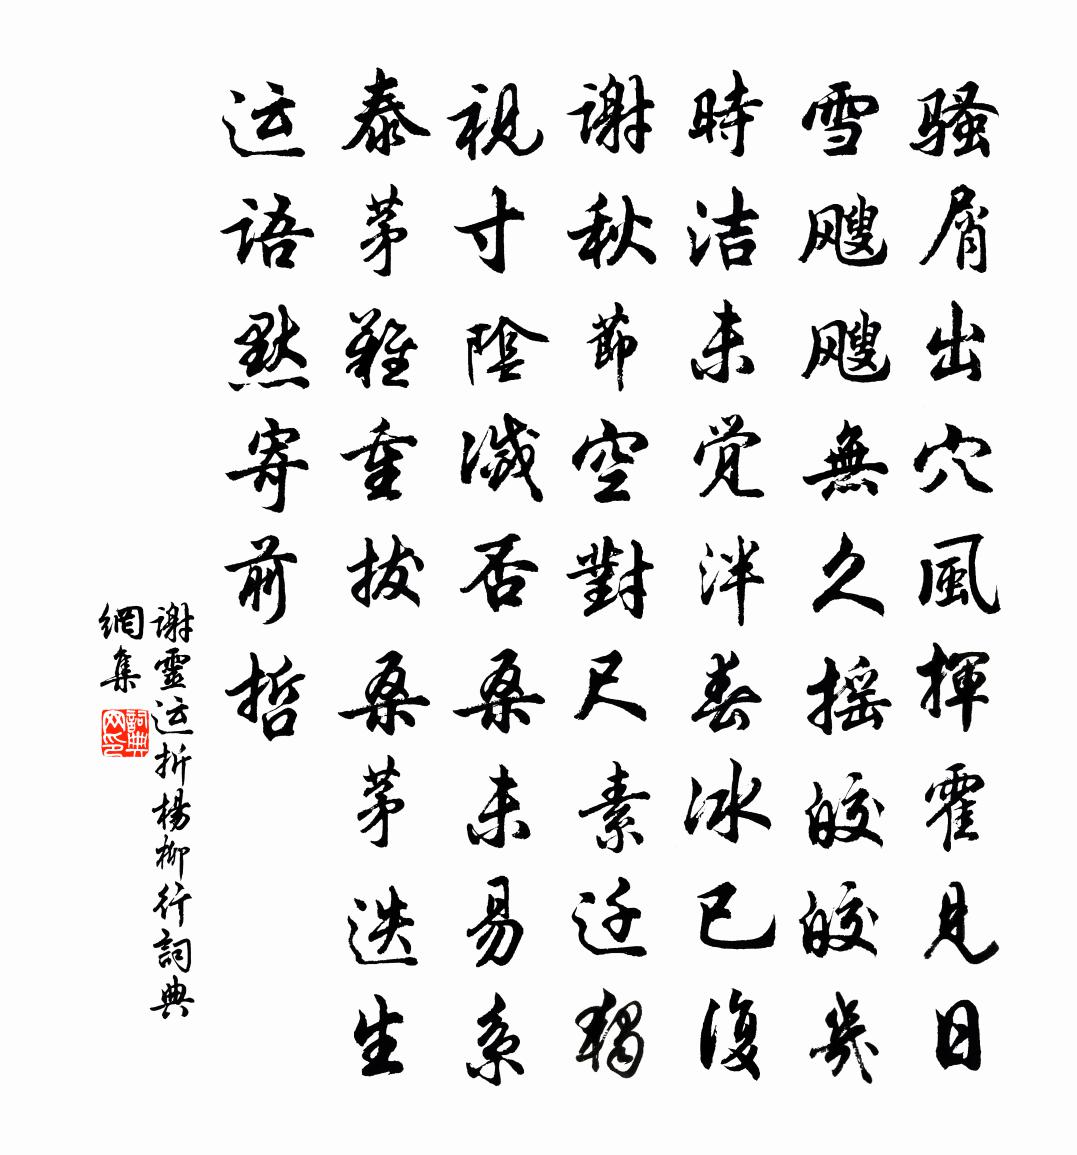 骚屑出穴風揮霍見日
雪颼颼無久摇皎皎幾
時洁未觉泮春冰已復
谢秋節空對尺素迁獨
視寸陰滅否桑未易系
泰茅難重拔桑茅迭生
运语默寄前哲
谢靈运折楊柳行詞典
網集
詞典
网印